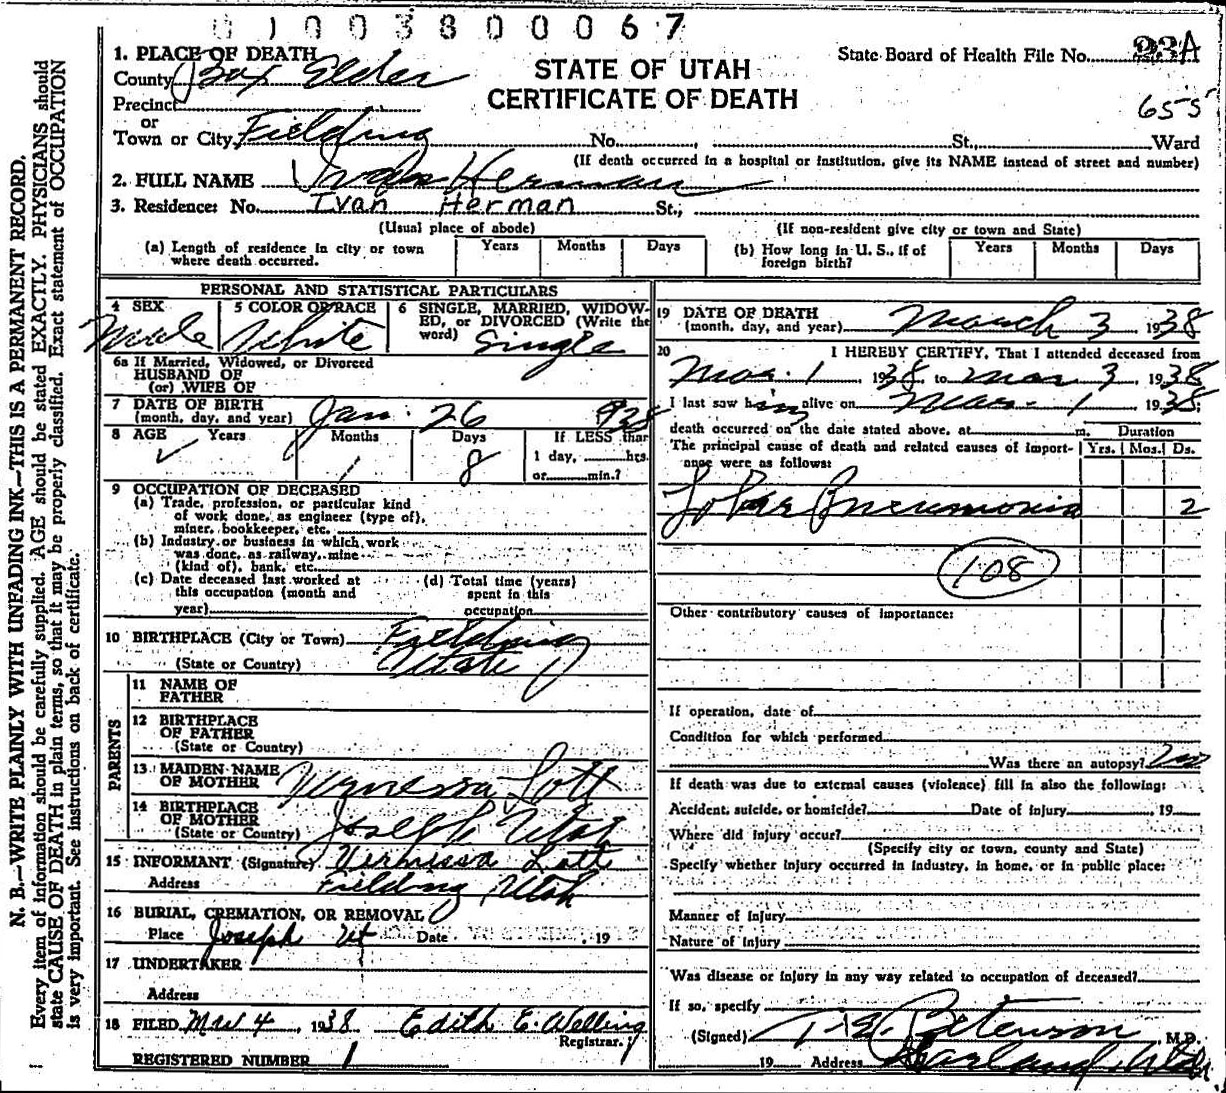 0 1 0 0 3 8 0 0 0 6 7
1. PLACE OF DEATH
County Box Elder
Precinct
or
Town or City Fielding No. St., Ward
STATE OF UTAH
CERTIFICATE OF DEATH
State Board of Health File No. 23A
655
(If death occurred in a hospital or institution, give its NAME instead of street and number)
2. FULL NAME Ivan Herman
3. Residence: No. Ivan Herman St.,
(Usual place of abode) (If non-resident give city or town and State)
(a) Length of residence in city or town where death occurred. Years Months Days
(b) How long in U. S., if of foreign birth? Years Months Days
PERSONAL AND STATISTICAL PARTICULARS
4 SEX Male
5 COLOR OR RACE White
6 SINGLE, MARRIED, WIDOWED, or DIVORCED (Write the word) Single
6a If Married, Widowed, or Divorced
HUSBAND OF
(or) WIFE OF
7 DATE OF BIRTH
(month, day, and year) Jan. 26 1938
8 AGE Years Months Days If LESS than
✓ 1 8 1 day, hrs.
or min.?
9 OCCUPATION OF DECEASED
(a) Trade, profession, or particular kind
of work done, as engineer (type of),
miner, bookkeeper, etc.
(b) Industry or business in which work
was done, as railway, mine
(kind of), bank, etc.
(c) Date deceased last worked at
this occupation (month and
year)
(d) Total time (years)
spent in this
occupation
10 BIRTHPLACE (City or Town) Fielding
(State or Country) Utah
PARENTS
11 NAME OF
FATHER
12 BIRTHPLACE
OF FATHER
(State or Country)
13 MAIDEN NAME
OF MOTHER Vernessa Lott
14 BIRTHPLACE
OF MOTHER
(State or Country) Joseph Utah
15 INFORMANT (Signature) Vernissa Lott
Address Fielding Utah
16 BURIAL, CREMATION, OR REMOVAL
Place Joseph Ut Date , 19
17 UNDERTAKER
Address
18 FILED Mar 4, 1938 Edith E. Welling
Registrar.
REGISTERED NUMBER 1
19 DATE OF DEATH
(month, day, and year) March 3 1938
20 I HEREBY CERTIFY, That I attended deceased from
Mar. 1, 1938, to Mar 3, 1938
I last saw him alive on Mar. 1 1938;
death occurred on the date stated above, at m. Duration
The principal cause of death and related causes of importance were as follows: Yrs. Mos. Ds.
Lobar Pneumonia 2
108
Other contributory causes of importance:
If operation, date of
Condition for which performed
Was there an autopsy? no
If death was due to external causes (violence) fill in also the following:
Accident, suicide, or homicide? Date of injury 19
Where did injury occur?
(Specify city or town, county and State)
Specify whether injury occurred in industry, in home, or in public place:
Manner of injury
Nature of injury
Was disease or injury in any way related to occupation of deceased?
If so, specify
(Signed) Peterson, M.D.
19 Address Garland, Utah
N. B.—WRITE PLAINLY WITH UNFADING INK—THIS IS A PERMANENT RECORD.
Every item of information should be carefully supplied. AGE should be stated EXACTLY. PHYSICIANS should
state CAUSE OF DEATH in plain terms, so that it may be properly classified. Exact statement of OCCUPATION
is very important. See instructions on back of certificate.